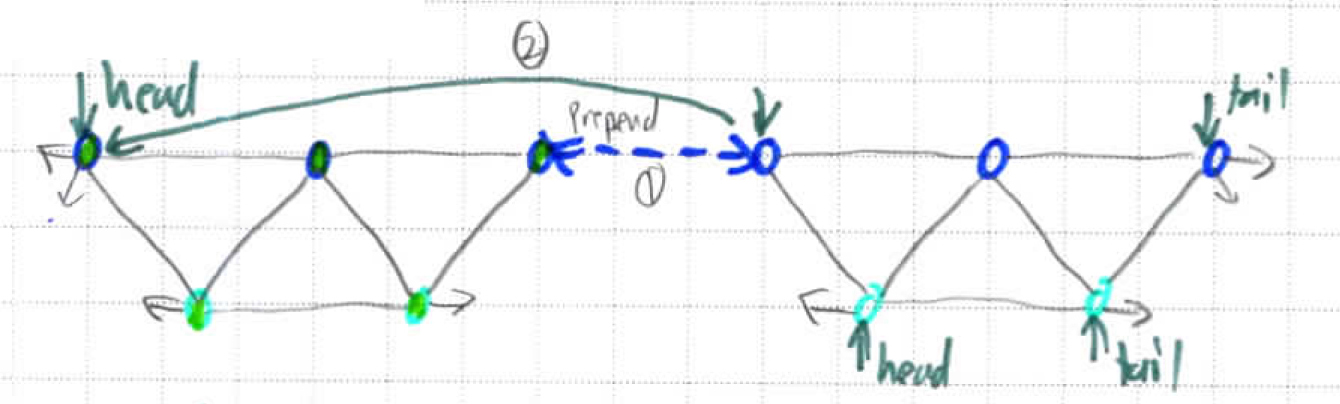 ②
head
Prepend
tail
①
head
tail